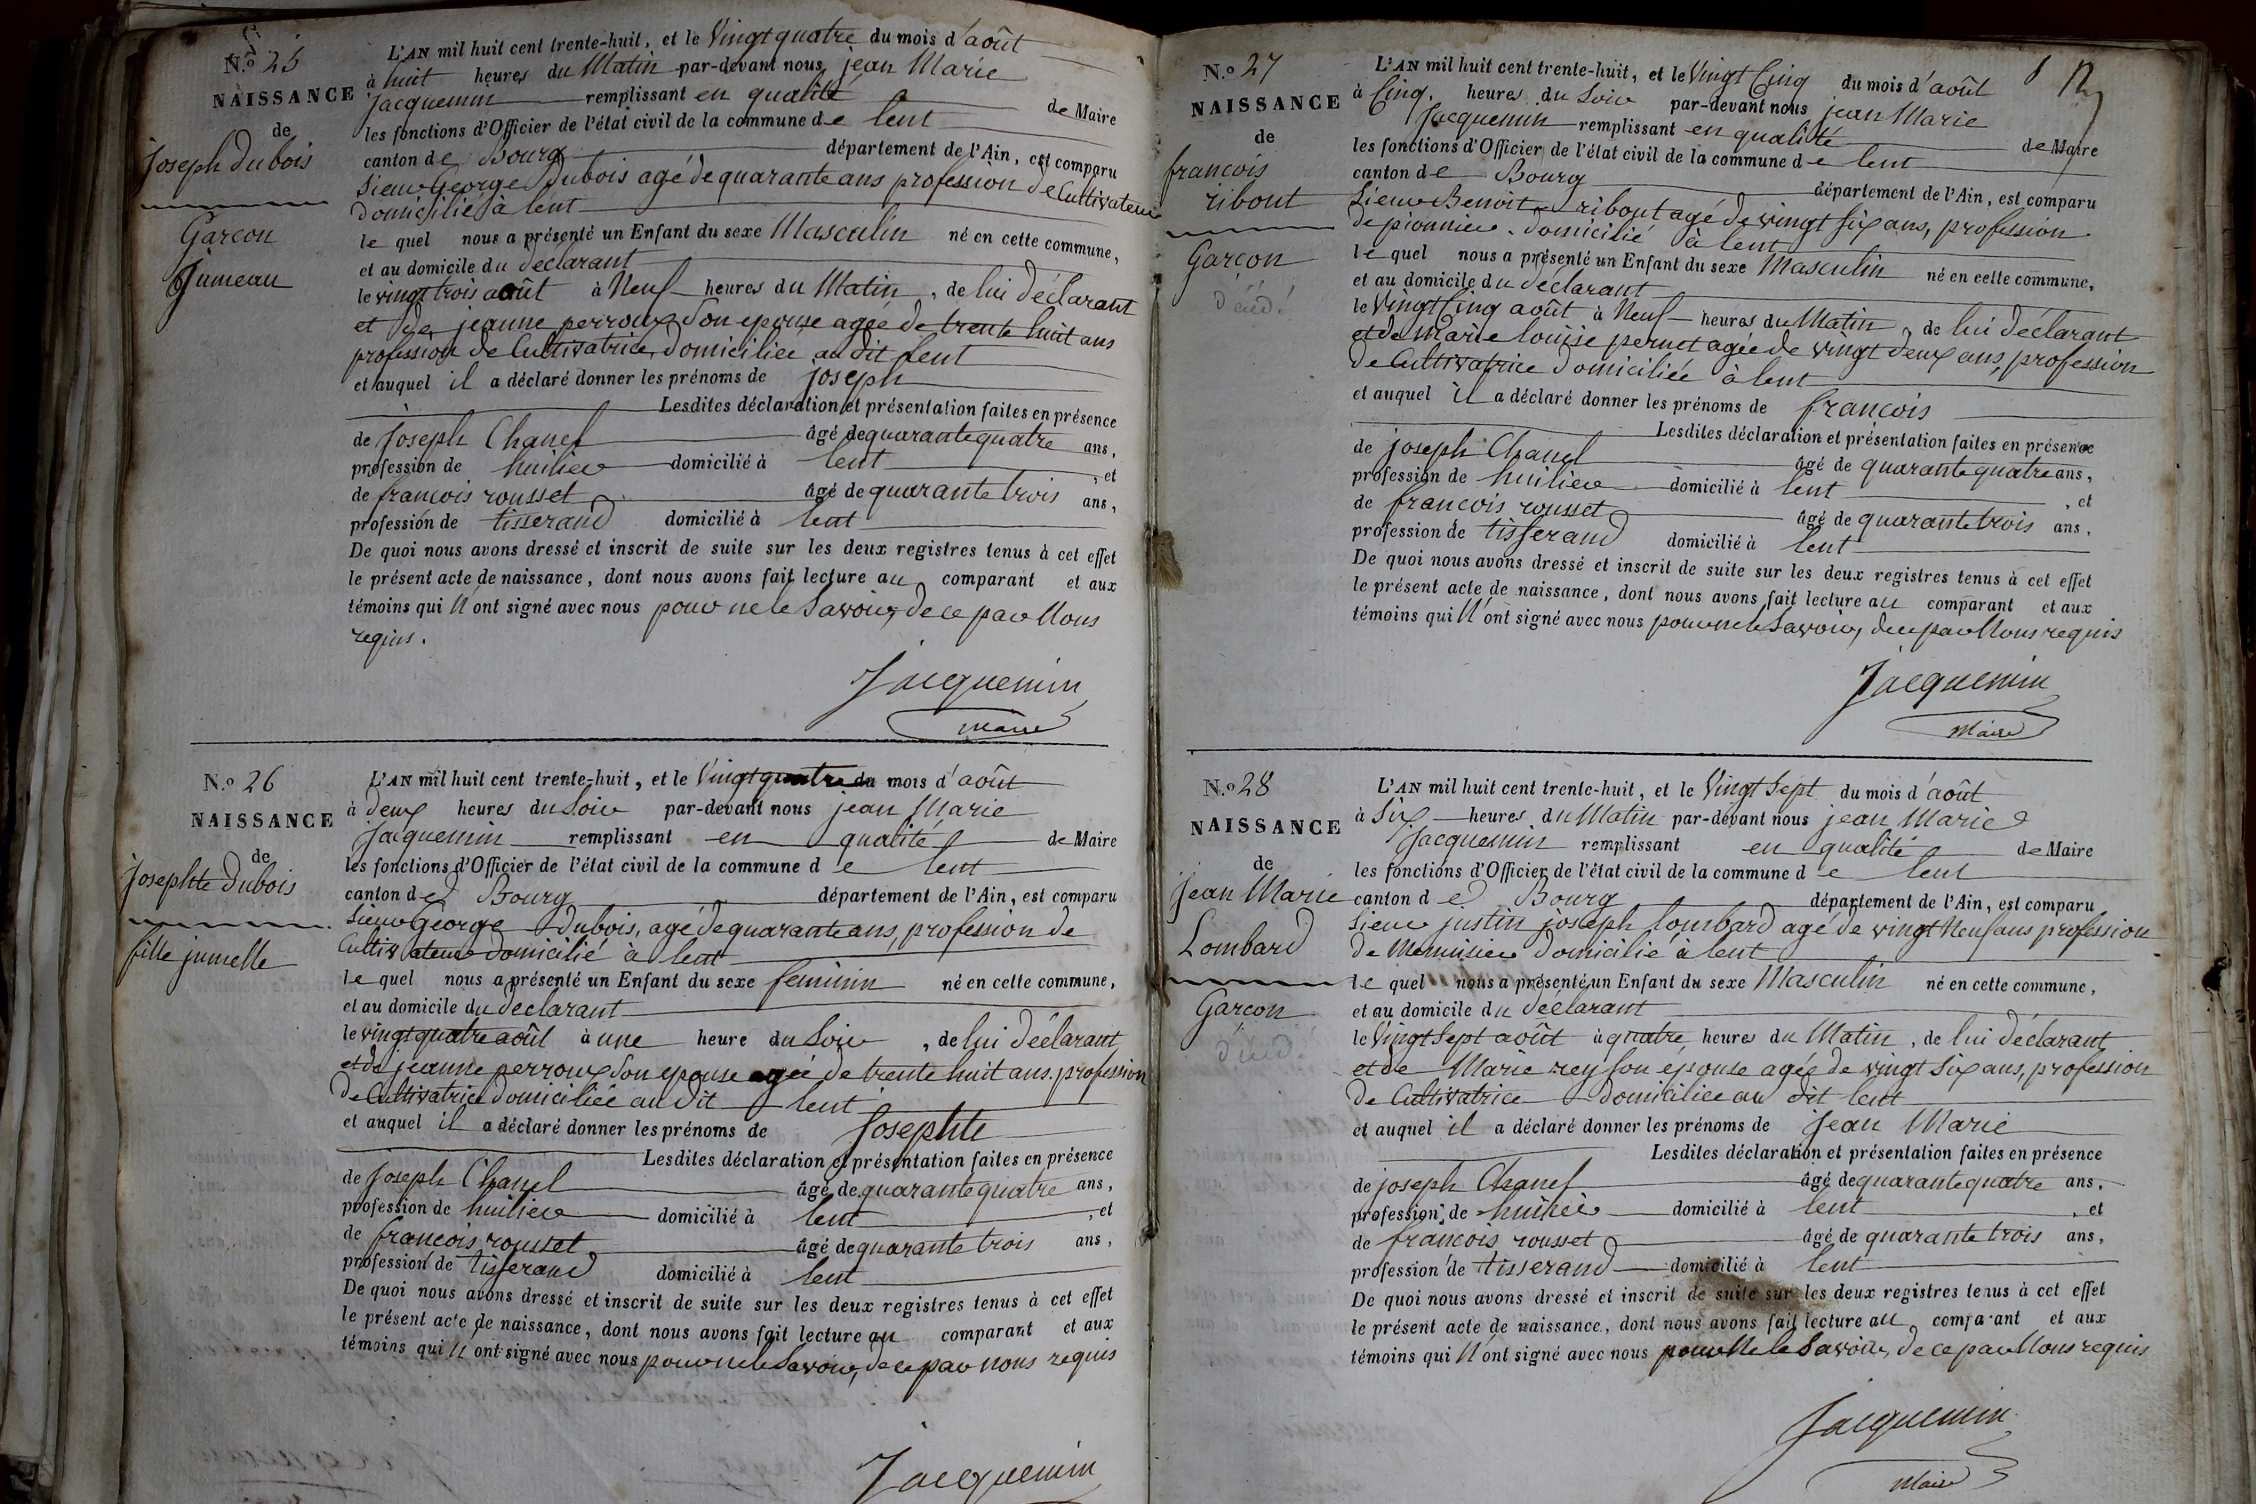 N.º 25
NAISSANCE
de
Joseph Dubois
Garcon
Jumeau
L'AN mil huit cent trente-huit, et le Vingt quatre du mois d'août
à huit heures du Matin par-devant nous jean Marie
Jacquemin remplissant en qualité de Maire
les fonctions d'Officier de l'état civil de la commune de lent
canton de Bourg département de l'Ain, est comparu
Sieur George Dubois agé de quarante ans profession de Cultivateur
domicilié à lent
le quel nous a présenté un Enfant du sexe Masculin né en cette commune,
et au domicile du déclarant
le vingt trois août à Neuf heures du Matin, de lui déclarant
et de jeanne perroux Son epouse agée de trente huit ans
profession de Cultivatrice, domiciliée au dit lent
et auquel il a déclaré donner les prénoms de joseph
Lesdites déclaration et présentation faites en présence
de Joseph Chanel âgé de quarante quatre ans,
profession de huilier domicilié à lent, et
de francois rousset âgé de quarante trois ans,
profession de tisserand domicilié à lent
De quoi nous avons dressé et inscrit de suite sur les deux registres tenus à cet effet
le présent acte de naissance, dont nous avons fait lecture au comparant et aux
témoins qui N'ont signé avec nous pour ne le Savoir, de ce par Nous
requis.
Jacquemin
Maire
N.º 26
NAISSANCE
de
Josephte Dubois
fille jumelle
L'AN mil huit cent trente-huit, et le Vingt quatre du mois d'août
à deux heures du Soir par-devant nous jean Marie
Jacquemin remplissant en qualité de Maire
les fonctions d'Officier de l'état civil de la commune de lent
canton de Bourg département de l'Ain, est comparu
Sieur George Dubois, agé de quarante ans, profession de
Cultivateur domicilié à lent
le quel nous a présenté un Enfant du sexe feminin né en cette commune,
et au domicile du declarant
le vingt quatre août à une heure du Soir, de lui déclarant
et de jeanne perroux Son epouse agée de trente huit ans. profession
de Cultivatrice domiciliée au dit lent
et auquel il a déclaré donner les prénoms de Josephte
Lesdites déclaration et présentation faites en présence
de Joseph Chanel âgé de quarante quatre ans,
profession de huilier domicilié à lent, et
de francois rousset âgé de quarante trois ans,
profession de tisserand domicilié à lent
De quoi nous avons dressé et inscrit de suite sur les deux registres tenus à cet effet
le présent acte de naissance, dont nous avons fait lecture au comparant et aux
témoins qui N'ont signé avec nous pour ne le Savoir, de ce par nous requis
Jacquemin
N.º 27
NAISSANCE
de
francois
ribout
Garçon
décéd.
L'AN mil huit cent trente-huit, et le Vingt Cinq du mois d'août
à Cinq heures du Soir par-devant nous jean Marie
Jacquemin remplissant en qualité de Maire
les fonctions d'Officier de l'état civil de la commune de lent
canton de Bourg département de l'Ain, est comparu
Sieur Benoit ribout agé de vingt six ans, profession
de pionnier domicilié à lent
le quel nous a présenté un Enfant du sexe Masculin né en cette commune,
et au domicile du déclarant
le Vingt Cinq août à Neuf heures du Matin, de lui déclarant
et de Marie louise pernet agée de vingt deux ans, profession
de Cultivatrice domiciliée à lent
et auquel il a déclaré donner les prénoms de francois
Lesdites déclaration et présentation faites en présence
de joseph Chanel âgé de quarante quatre ans,
profession de huilier domicilié à lent, et
de francois rousset âgé de quarante trois ans,
profession de tisserand domicilié à lent
De quoi nous avons dressé et inscrit de suite sur les deux registres tenus à cet effet
le présent acte de naissance, dont nous avons fait lecture au comparant et aux
témoins qui N'ont signé avec nous pour ne le Savoir, de ce par Nous requis
Jacquemin
Maire
N.º 28
NAISSANCE
de
jean Marie
Lombard
Garçon
décéd.
L'AN mil huit cent trente-huit, et le Vingt Sept du mois d'août
à Six heures du Matin par-devant nous jean Marie
Jacquemin remplissant en qualité de Maire
les fonctions d'Officier de l'état civil de la commune de lent
canton de Bourg département de l'Ain, est comparu
Sieur justin joseph lombard agé de vingt Neuf ans profession
de Menuisier domicilié à lent
le quel nous a présenté un Enfant du sexe Masculin né en cette commune,
et au domicile du déclarant
le Vingt Sept août à quatre heures du Matin, de lui déclarant
et de Marie rey Son épouse agée de vingt Six ans, profession
de Cultivatrice domiciliée au dit lent
et auquel il a déclaré donner les prénoms de Jean Marie
Lesdites déclaration et présentation faites en présence
de joseph Chanel âgé de quarante quatre ans,
profession de huilier domicilié à lent, et
de francois rousset âgé de quarante trois ans,
profession de tisserand domicilié à lent
De quoi nous avons dressé et inscrit de suite sur les deux registres tenus à cet effet
le présent acte de naissance, dont nous avons fait lecture au comparant et aux
témoins qui N'ont signé avec nous pour Ne le Savoir, de ce par Nous requis
Jacquemin
Maire